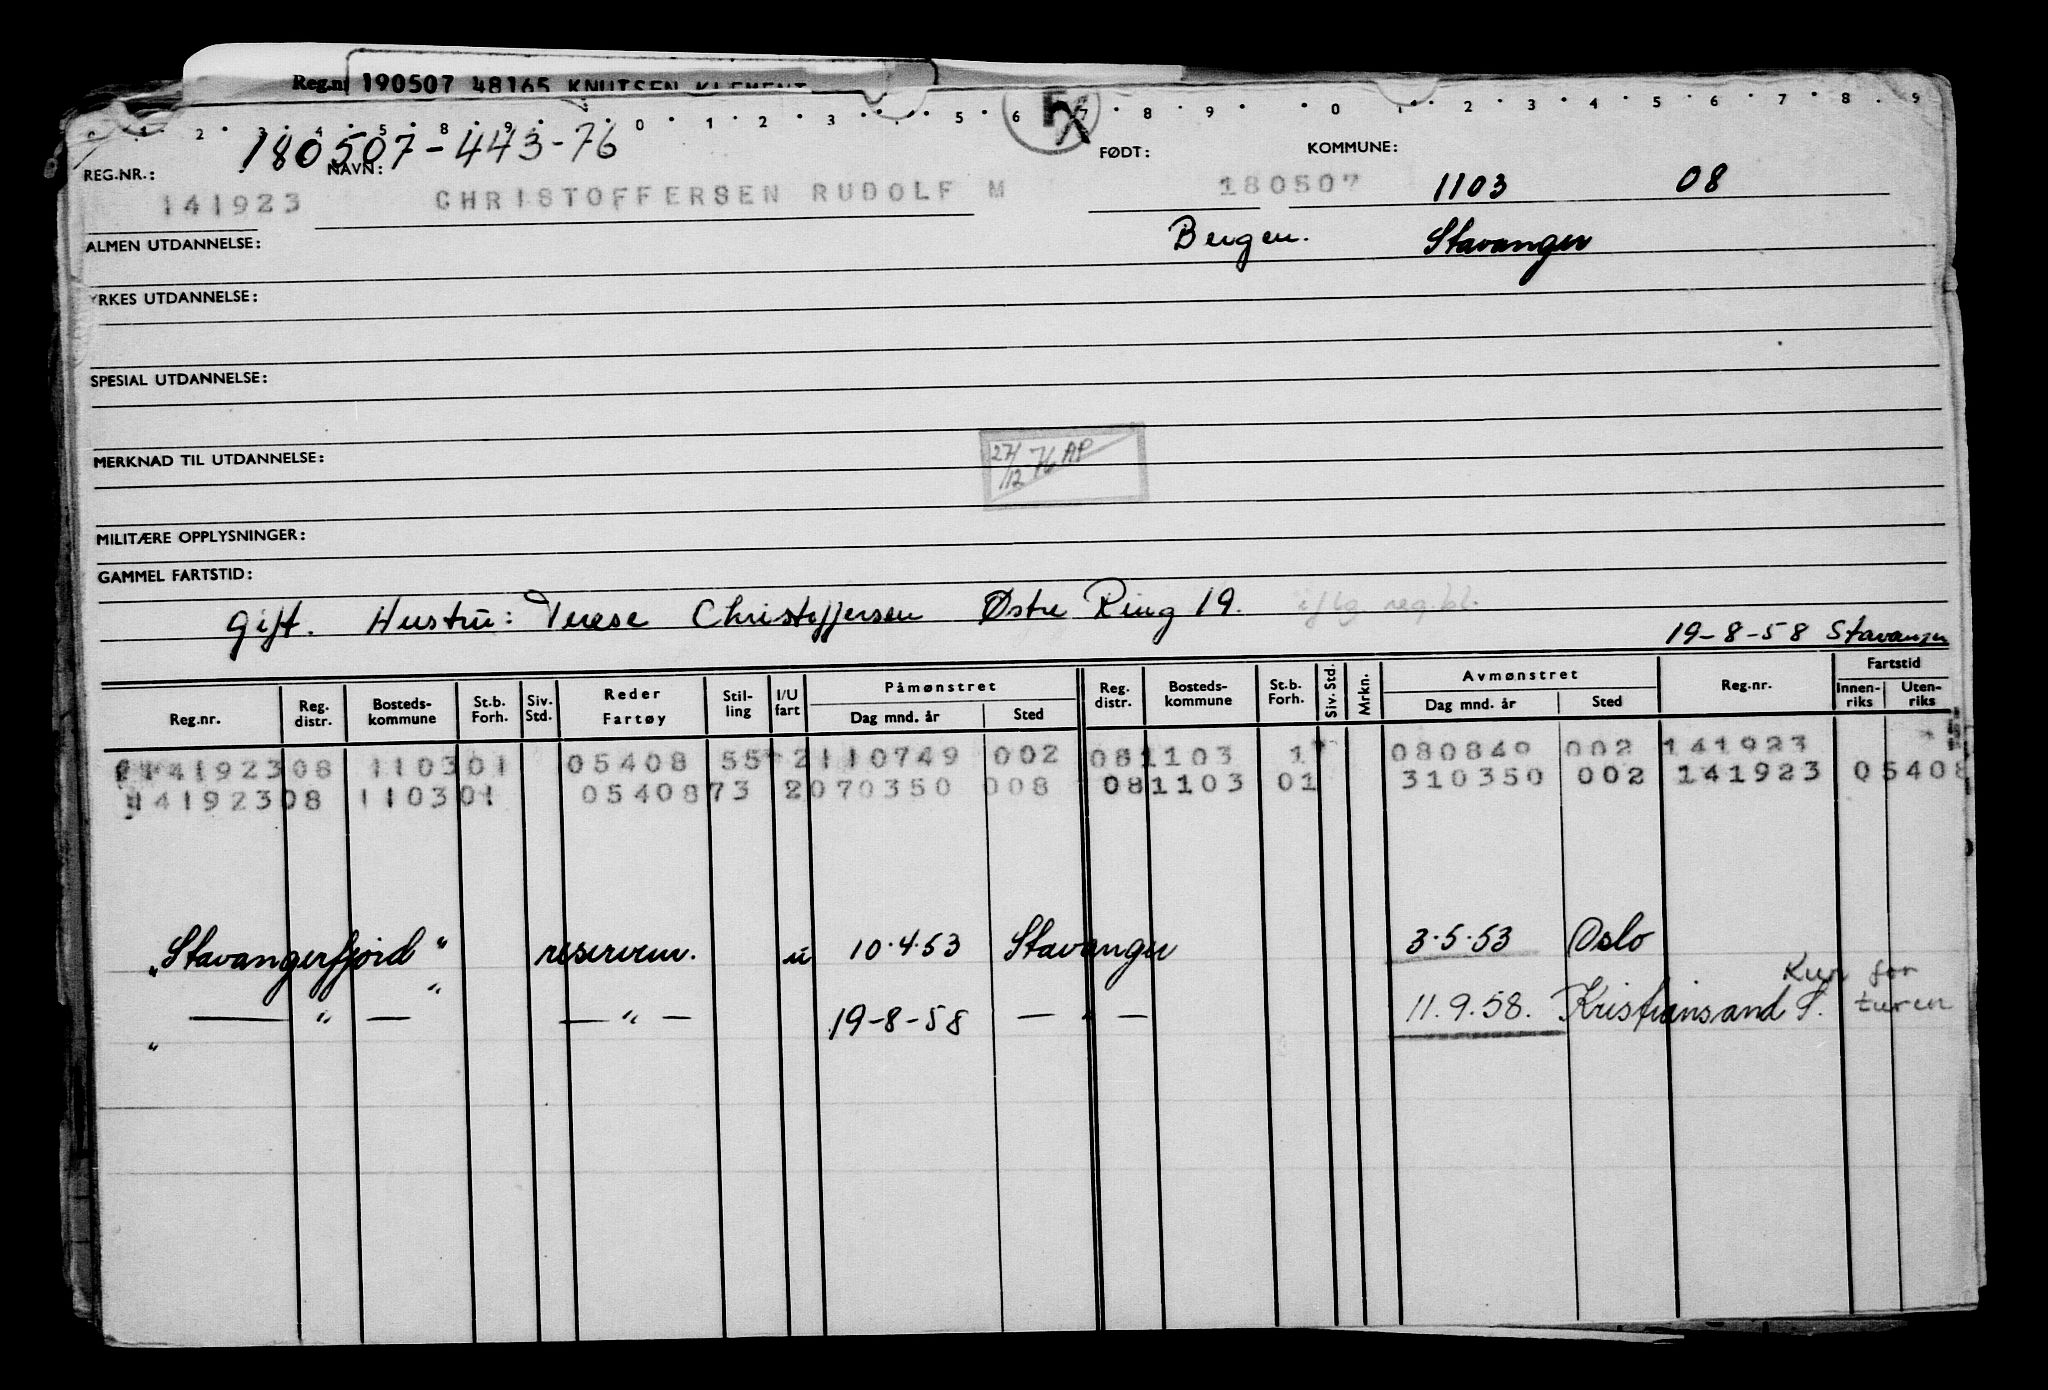 Reg.n 190507 48165 KNUTSEN KLEMENT
180507-443-76
REG.NR.: NAVN: FØDT: KOMMUNE:
141923 CHRISTOFFERSEN RUDOLF M 180507 1103 08
Bergen. Stavanger
ALMEN UTDANNELSE:
YRKES UTDANNELSE:
SPESIAL UTDANNELSE:
MERKNAD TIL UTDANNELSE:
27/12-76 AP
MILITÆRE OPPLYSNINGER:
GAMMEL FARTSTID:
gift. Hustru: Terese Christoffersen Østre Ring 19. iflg. reg.bl.
19-8-58 Stavanger
Reg.nr. Reg. distr. Bosteds- kommune St.b. Forh. Siv. Std. Reder Fartøy Stil- ling I/U fart Påmønstret Dag mnd. år Sted Reg. distr. Bosteds- kommune St.b. Forh. Siv. Std. Mrkn. Avmønstret Dag mnd. år Sted Reg.nr. Fartstid Innen- riks Uten- riks
14192308 110301 05408 55 2110749 002 081103 1 080849 002 141923
14192308 110301 0540873 2070350 008 081103 01 310350 002 141923 05408
"Stavangerfjord" reserven. u 10.4.53 Stavanger 3.5.53 Oslo
" — " — " — " — 19-8-58 — " — 11.9.58. Kristiansand S. Kun for turen